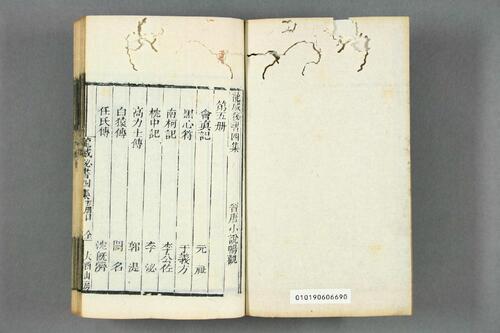 龍威秘書四集 晉唐小說暢觀
第五册
會真記 元稹
黑心符 于義方
南柯記 李公佐
枕中記 李泌
高力士傳 郭湜
白猿傳 闕名
任氏傳 沈既濟
龍威秘書四集 五册目 全 大酉山房
010190606690